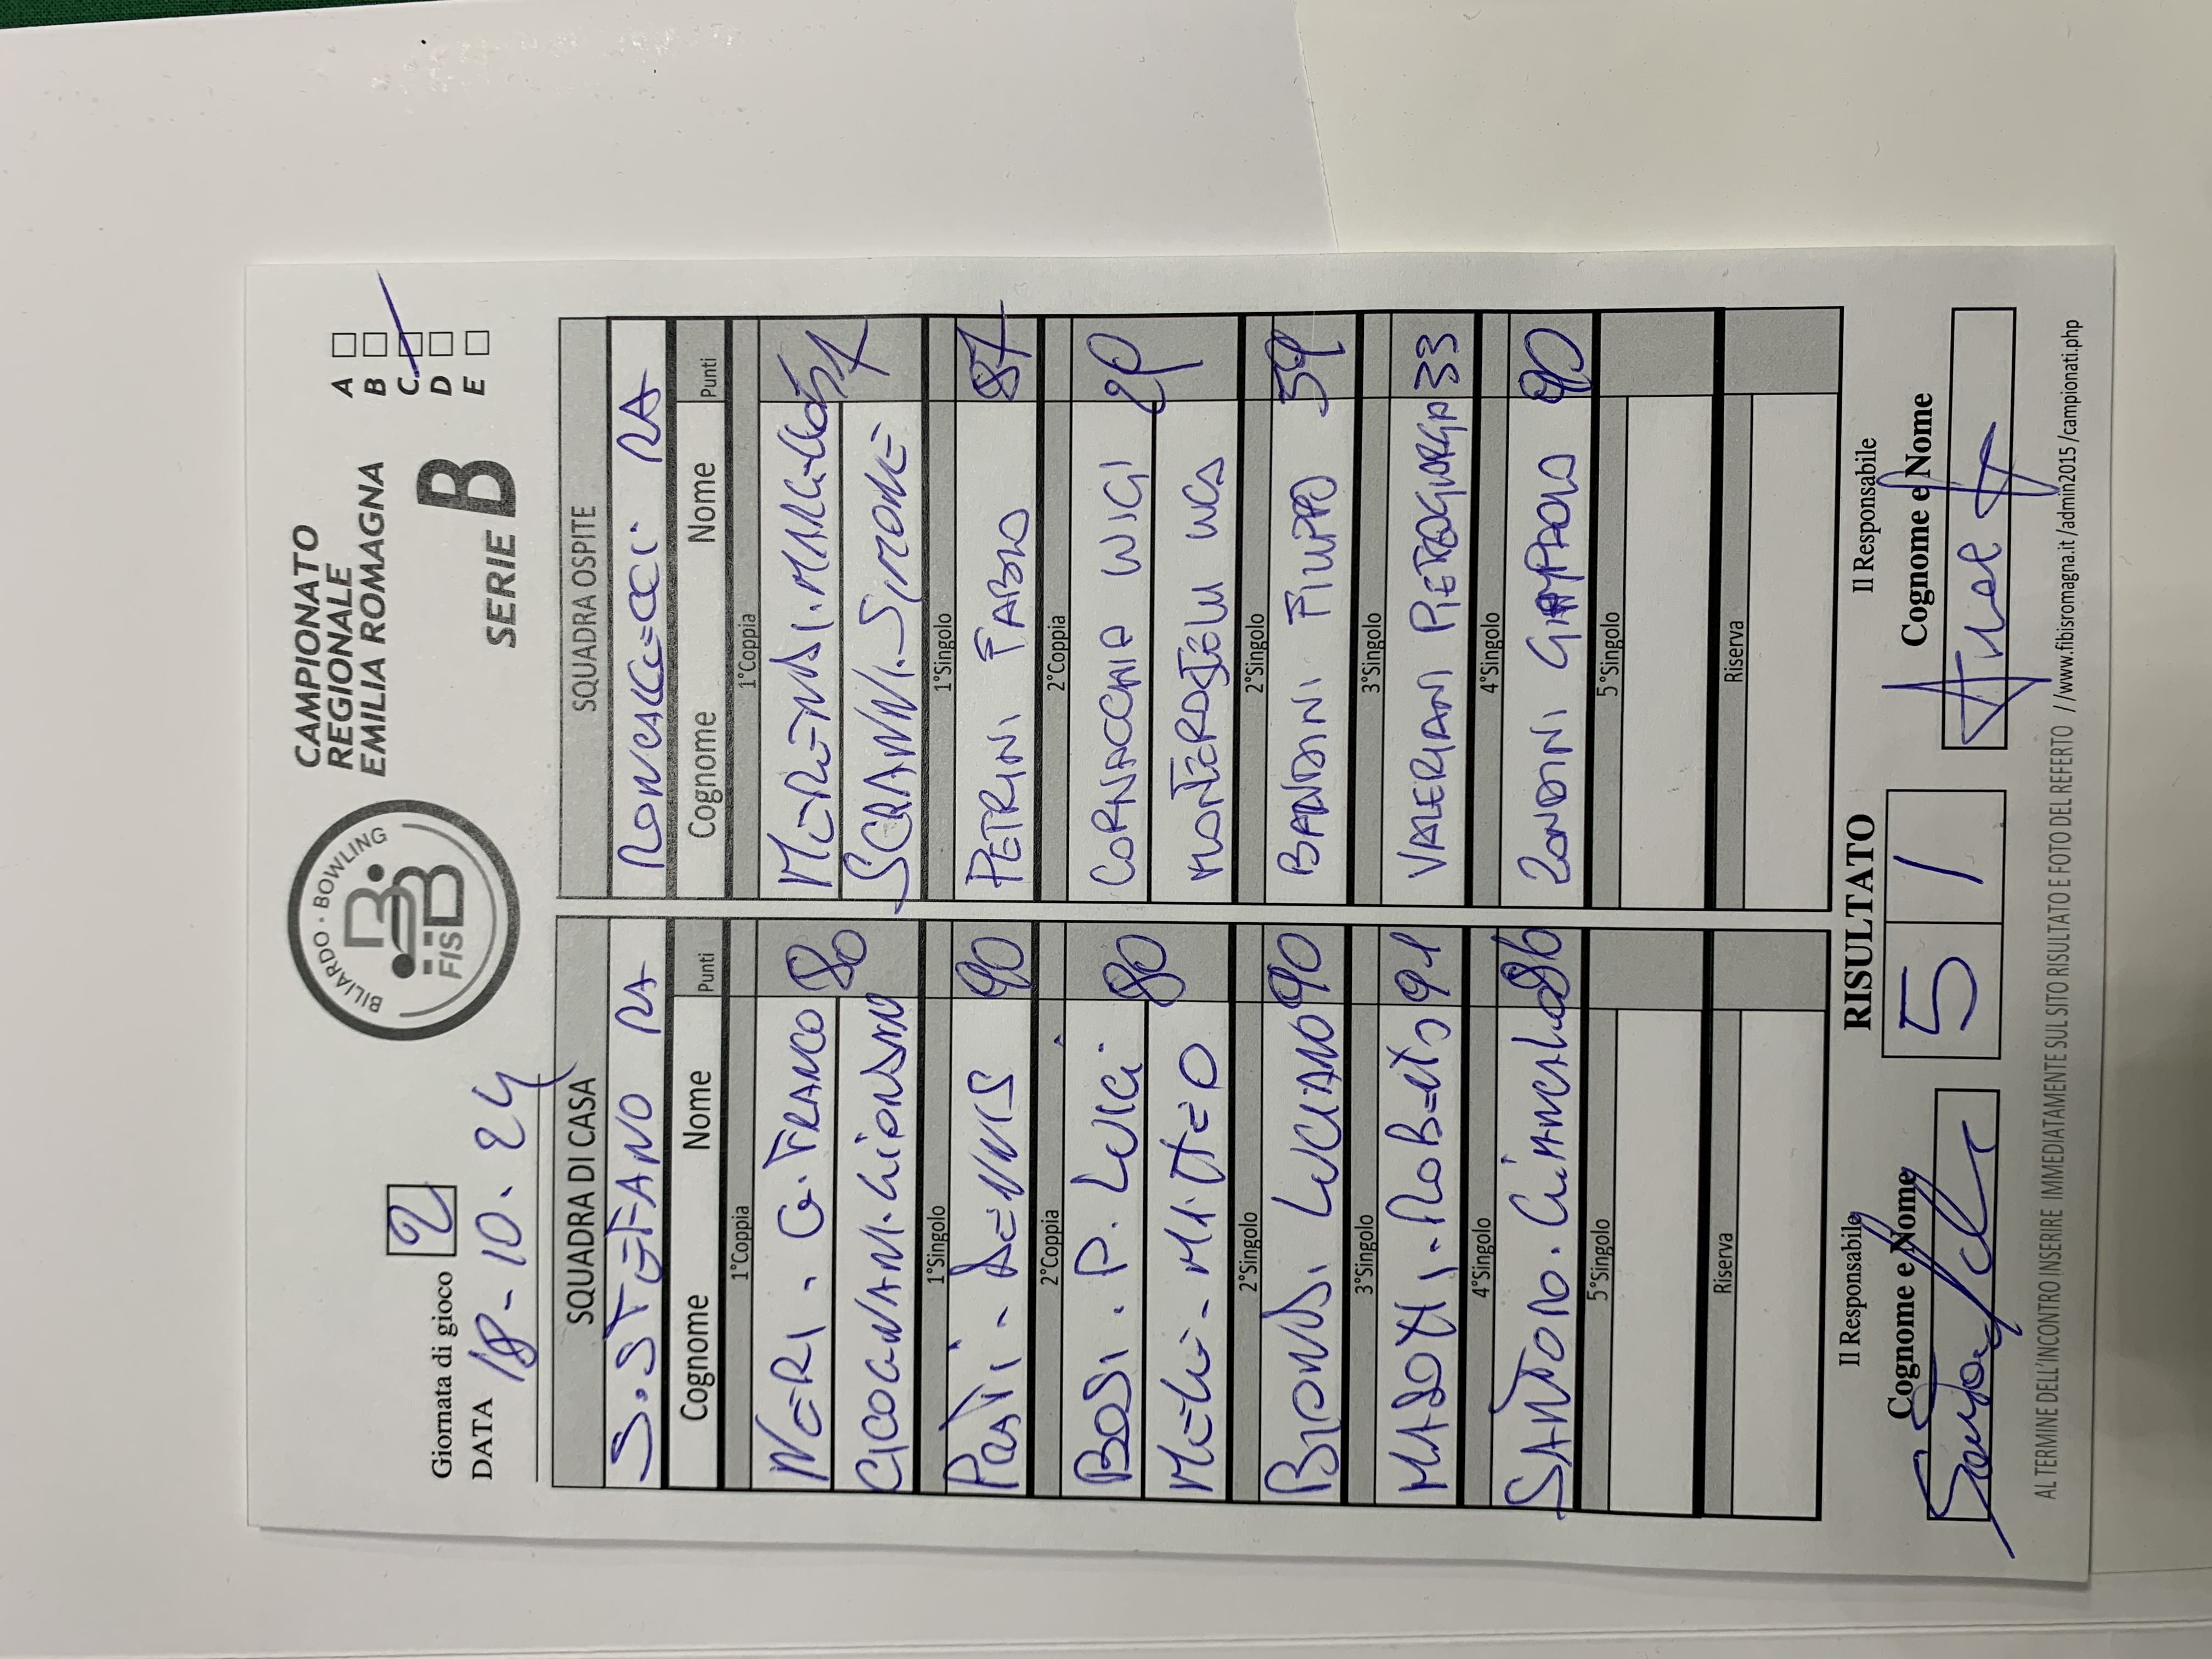 Giornata di gioco 2
DATA 18-10.24
BILIARDO · BOWLING
FISBB
CAMPIONATO
REGIONALE
EMILIA ROMAGNA
SERIE B
A
B
C
D
E
SQUADRA DI CASA
S.STEFANO RA
Cognome Nome Punti
1°Coppia
NERI. G.FRANCO 80
CICOGNANI.
1°Singolo
PRATI - DENNIS 90
2°Coppia
BOSI. P. LUIGI 80
MELE - MATTEO
2°Singolo
BIONDI LUCIANO 90
3°Singolo
ROBERTO 91
4°Singolo
SANTORO. 86
5°Singolo
Riserva
SQUADRA OSPITE
RA
Cognome Nome Punti
1°Coppia
MERENDI. MARCELLO 57
SCRANNI. SIMONE
1°Singolo
PETRINI FABIO 87
2°Coppia
CORNACCHIA LUIGI
LUCA
2°Singolo
BANDINI FILIPPO 59
3°Singolo
VALERIANI PIERGIORGIO 33
4°Singolo
ZONDINI GIAMPAOLO 90
5°Singolo
Riserva
Il Responsabile
Cognome e Nome
RISULTATO
5 1
Il Responsabile
Cognome e Nome
AL TERMINE DELL'INCONTRO INSERIRE IMMEDIATAMENTE SUL SITO RISULTATO E FOTO DEL REFERTO //www.fibisromagna.it/admin2015/campionati.php